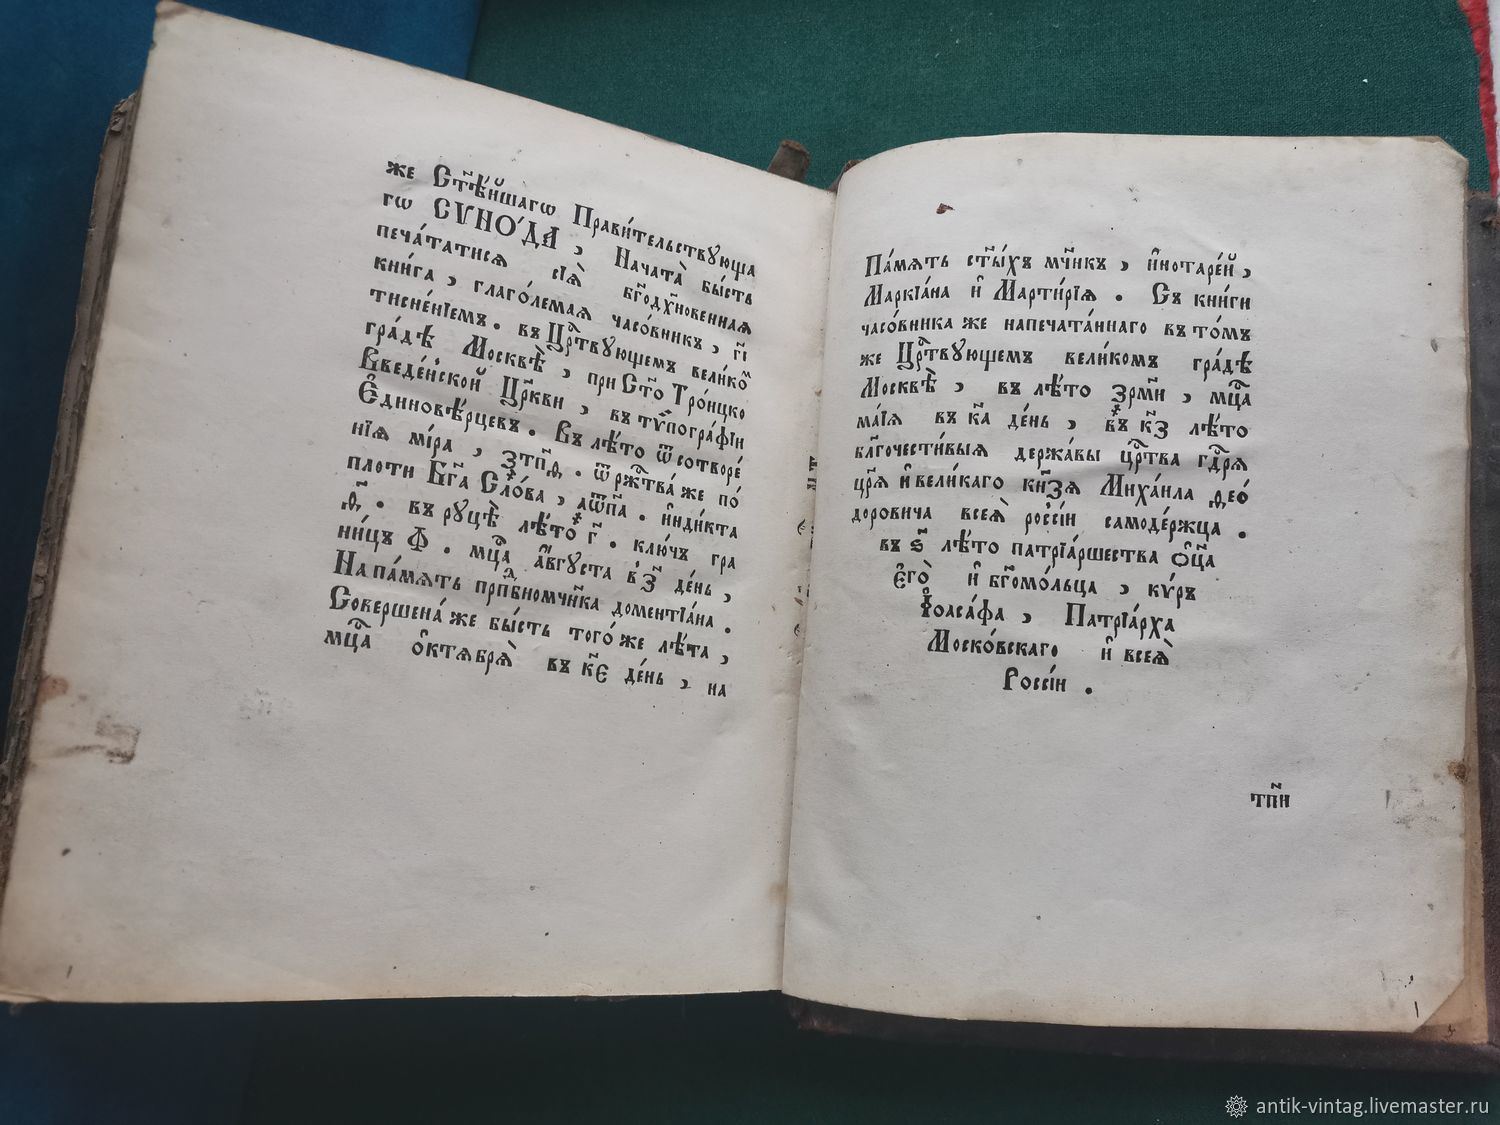 же Ст҃ѣ́йшагѡ Прави́тельствꙋюща
гѡ СѴНО́ДА , Начата̀ бы́сть
печа́татисѧ сїѧ̀ бг҃одꙋхнове́ннаѧ
кни́га , глаго́лемаѧ часо́вникъ , г҃і
тисне́нїемъ . въ Црⷭ҇твꙋющемъ вели́коⷨ
гра́дѣ Москвѣ̀ , при Ст҃о Тро́ицко
Введе́нской Цр҃кви , въ тѷпогра́фїи
Є҆диновѣ́рцевъ . Въ лѣ́то ѿ сотворе́
нїѧ мі́ра , ҂зтп҃ѳ . ѿ ржⷭ҇тва́ же по́
плоти Бг҃а Сло́ва , ҂аѿп҃а . и҆ндїкта
ѳ҃ . въ рꙋцѣ̀ лѣ́то г҃ . ключъ гра
ни́цъ Ф . мцⷭ҇а а҆́ѵгꙋста въ з҃ де́нь ,
На па́мѧть прпⷣбномч҃ника доментїа́на .
Соверше́на же бы́сть того́ же лѣ́та ,
мцⷭ҇а о҆ктѧбрѧ̀ въ к҃є де́нь , на
Па́мѧть ст҃ы́хъ мч҃никъ , и҆ нотаре́й ,
Маркїа́на и҆ Марти́рїѧ . Съ кни́ги
часо́вника же напечата́ннаго въ то́мъ
же Црⷭ҇твꙋющемъ вели́комъ гра́дѣ
Москвѣ̀ , въ лѣ́то ҂зрм҃и , мцⷭ҇а
ма́їѧ въ к҃а де́нь , въ к҃з лѣ́то
благочести́выѧ держа́вы црⷭ҇тва гдⷭ҇рѧ
цр҃ѧ и҆ вели́каго кн҃зѧ Миха́ила Ѳео́
доровича всеѧ̀ россі́и самоде́ржца .
въ ѕ҃ лѣ́то патрїа́ршества ѻ҆ц҃а
є҆гѡ̀ и҆ бг҃омо́льца , кѵ́ръ
І҆оаса́фа , Патрїа́рха
Моско́вскаго и҆ всеѧ̀
Россі́и .
тп҃и
antik-vintag.livemaster.ru